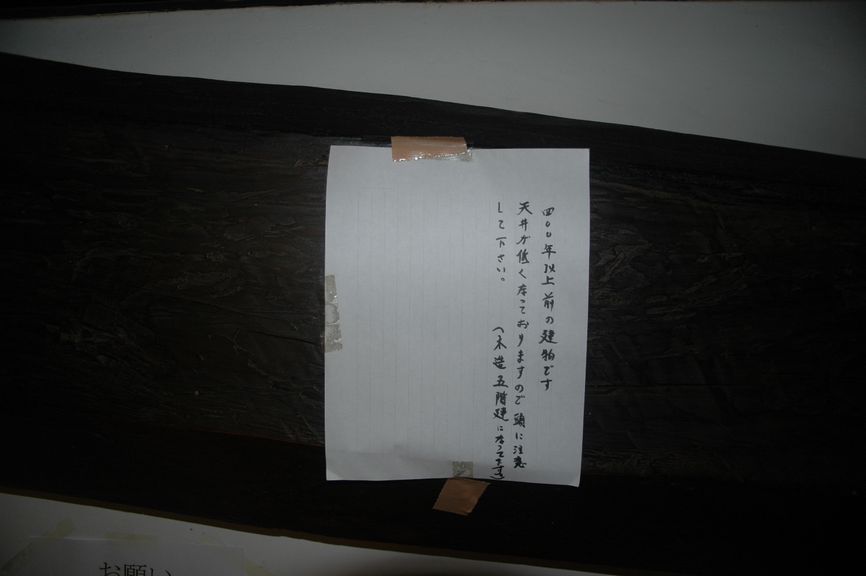 四〇〇年以上前の建物です
天井が低くなっておりますので頭に注意
して下さい。
(木造五階建になってます)
お願い